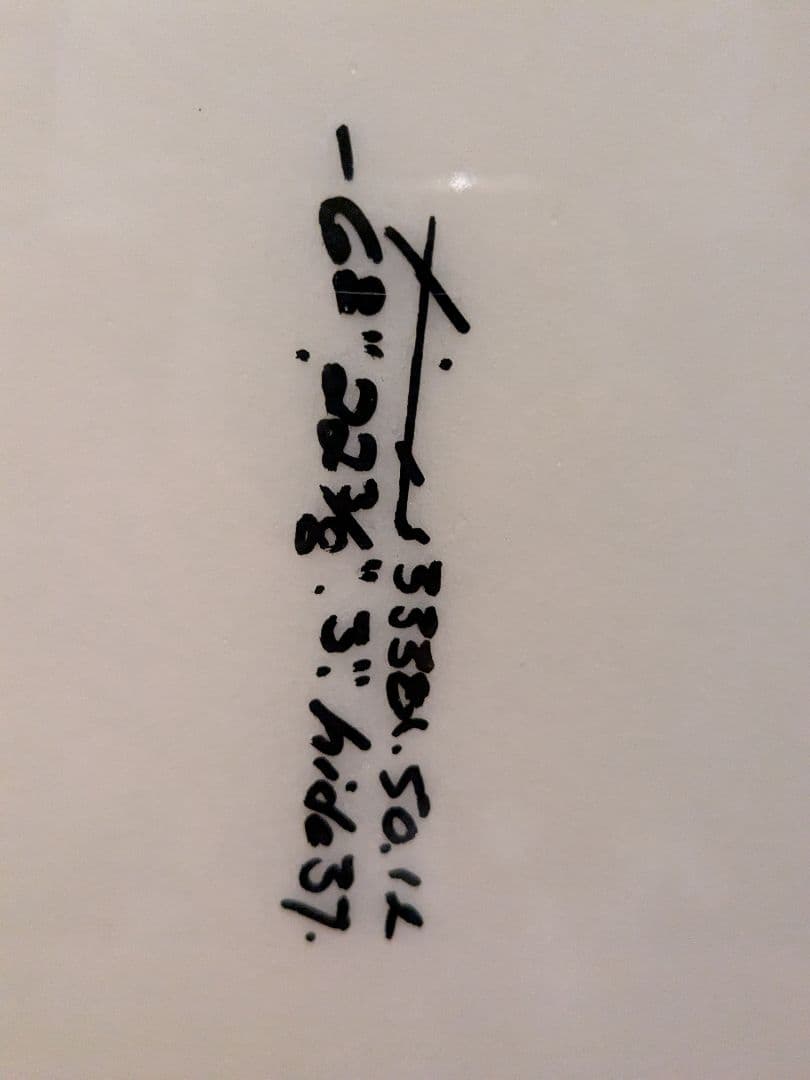 3338x.50.12
- 68" 22 3/8". 3". hide 37.